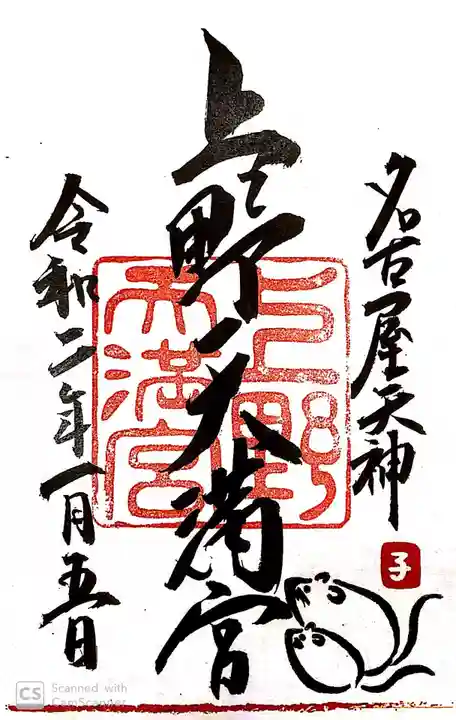 名古屋天神
子
上野天満宮
上野
天満宮
令和二年一月五日
CS Scanned with
CamScanner